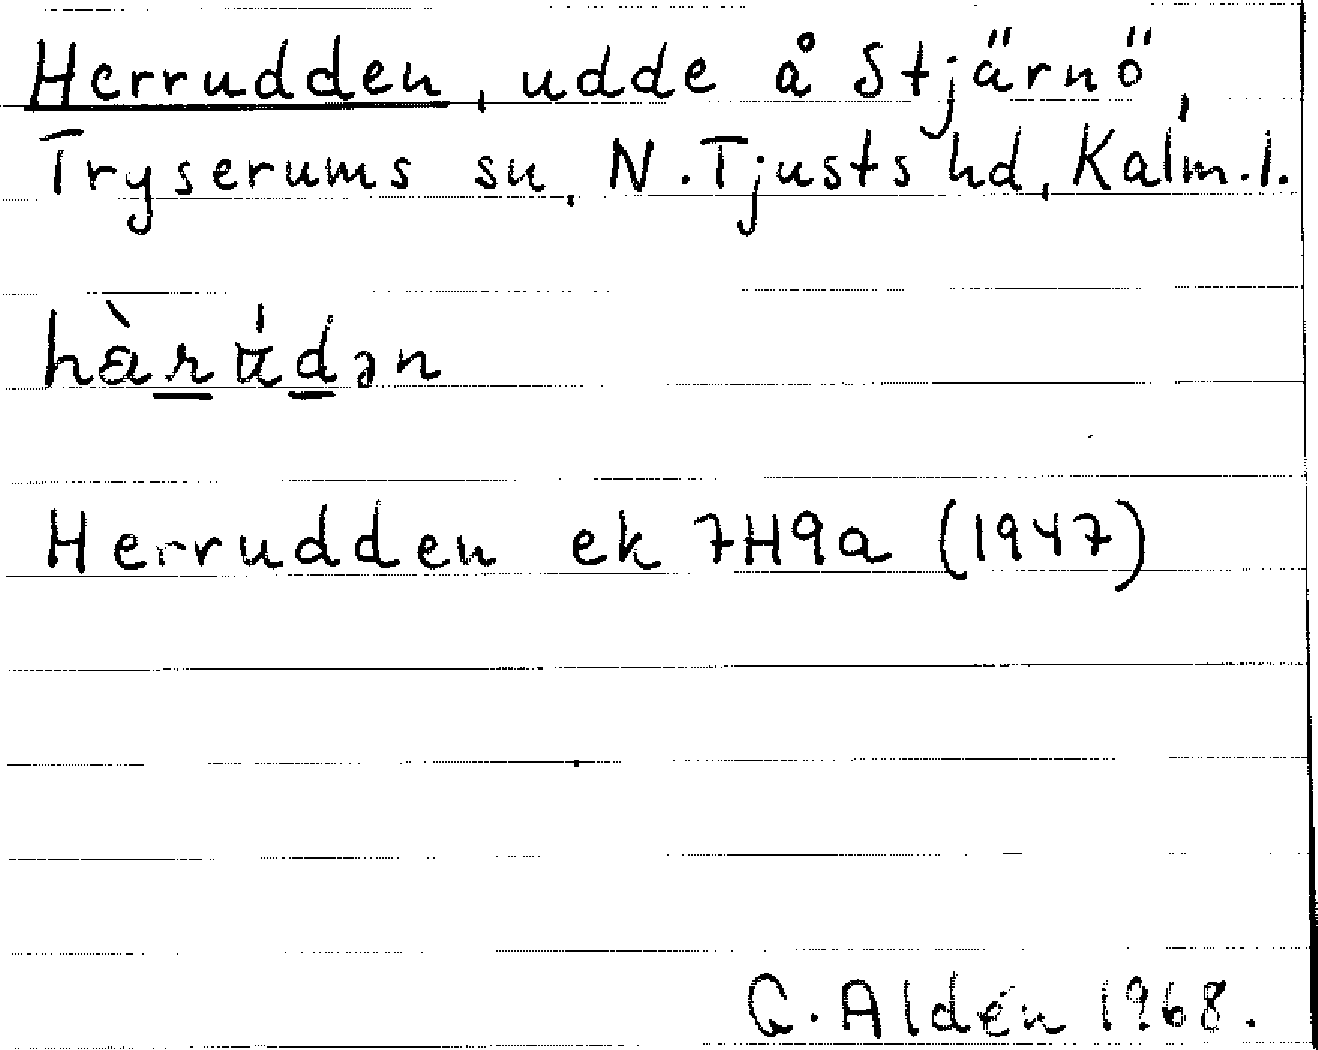 Herrudden, udde å Stjärnö,
Tryserums sn, N. Tjusts hd, Kalm. l.
Herrudden ek 7H9a (1947)
G. Aldén 1968.